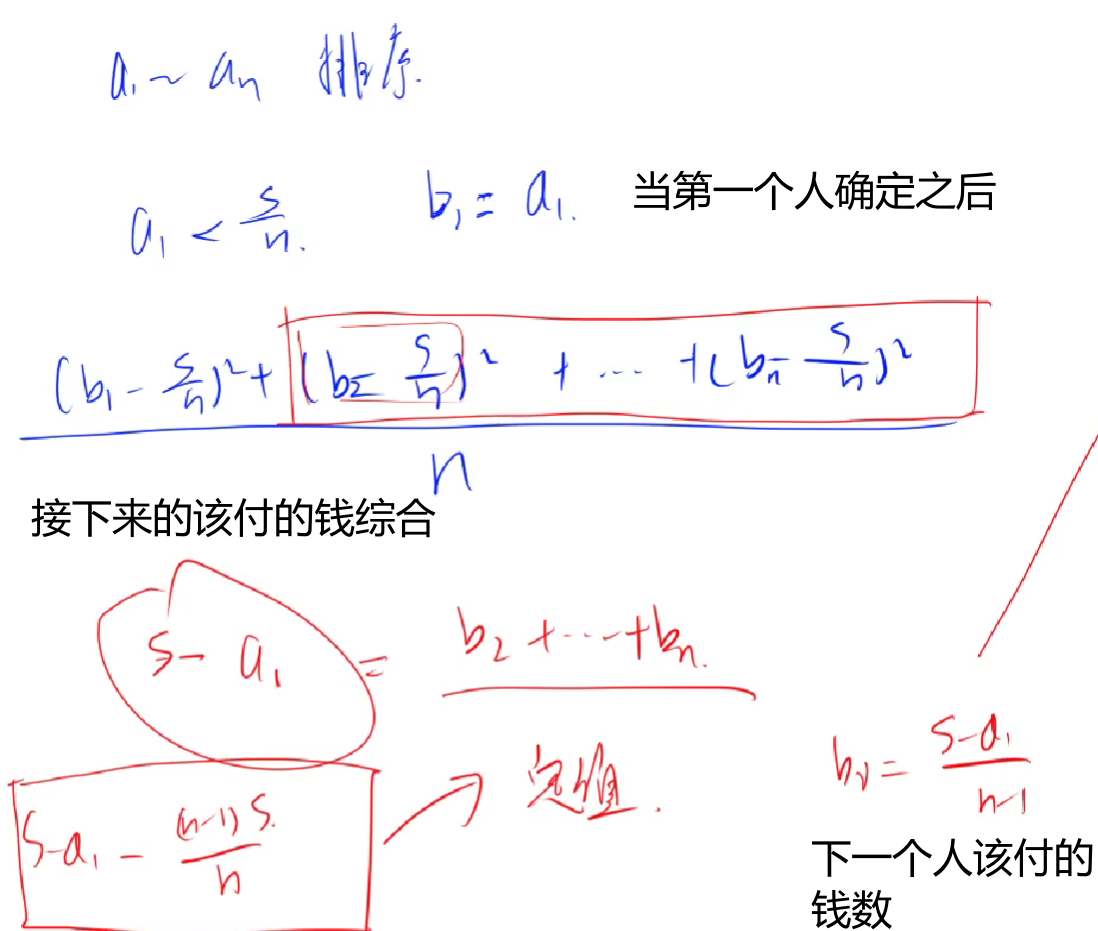 a₁ ~ aₙ 排序.
a₁ < s/n. b₁ = a₁. 当第一个人确定之后
(b₁ - s/n)² + (b₂ - s/n)² + ... + (bₙ - s/n)²
n
接下来的该付的钱综合
s - a₁ = b₂ + ... + bₙ.
s - a₁ - (n-1)s/n → 定值.
b₂ = (s-a₁)/(n-1)
下一个人该付的
钱数